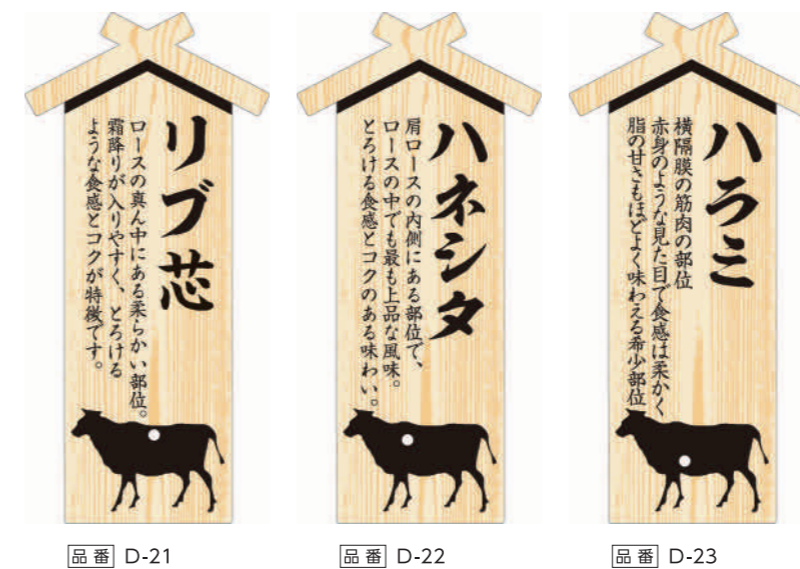 リブ芯
ロースの真ん中にある柔らかい部位。
霜降りが入りやすく、とろける
ような食感とコクが特徴です。
品番 D-21
ハネシタ
肩ロースの内側にある部位で、
ロースの中でも最も上品な風味。
とろける食感とコクのある味わい。
品番 D-22
ハラミ
横隔膜の筋肉の部位
赤身のような見た目で食感は柔かく
脂の甘さもほどよく味わえる希少部位
品番 D-23